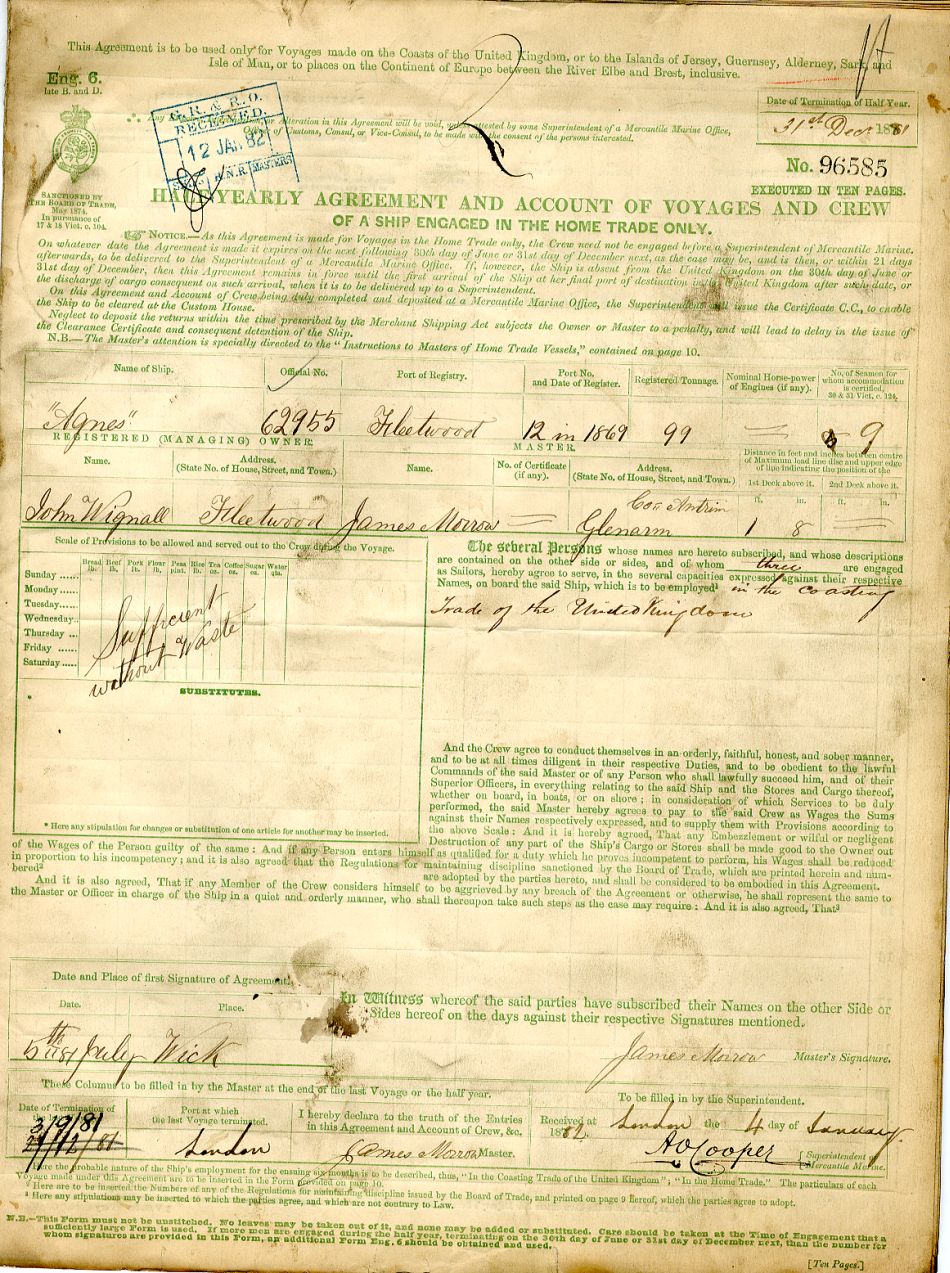 This Agreement is to be used only for Voyages made on the Coasts of the United Kingdom, or to the Islands of Jersey, Guernsey, Alderney, Sark, and
Isle of Man, or to places on the Continent of Europe between the River Elbe and Brest, inclusive.
Eng. 6.
late B. and D.
G. R. & R. O.
RECEIVED.
12 JAN 82
R.N.R. MASTERS
Alteration in this Agreement will be void, unless attested by some Superintendent of a Mercantile Marine Office,
of Customs, Consul, or Vice-Consul, to be made with the consent of the persons interested.
Date of Termination of Half Year.
31st Decr 1881
No. 96585
EXECUTED IN TEN PAGES.
SANCTIONED BY
THE BOARD OF TRADE,
May 1874,
In pursuance of
17 & 18 Vict. c. 104.
HALF-YEARLY AGREEMENT AND ACCOUNT OF VOYAGES AND CREW
OF A SHIP ENGAGED IN THE HOME TRADE ONLY.
NOTICE.—As this Agreement is made for Voyages in the Home Trade only, the Crew need not be engaged before a Superintendent of Mercantile Marine.
On whatever date the Agreement is made it expires on the next following 30th day of June or 31st day of December next, as the case may be, and is then, or within 21 days
afterwards, to be delivered to the Superintendent of a Mercantile Marine Office. If, however, the Ship is absent from the United Kingdom on the 30th day of June or
31st day of December, then this Agreement remains in force until the first arrival of the Ship at her final port of destination in the United Kingdom after such date, or
the discharge of cargo consequent on such arrival, when it is to be delivered up to a Superintendent.
On this Agreement and Account of Crew being duly completed and deposited at a Mercantile Marine Office, the Superintendent will issue the Certificate C.C., to enable
the Ship to be cleared at the Custom House.
Neglect to deposit the returns within the time prescribed by the Merchant Shipping Act subjects the Owner or Master to a penalty, and will lead to delay in the issue of
the Clearance Certificate and consequent detention of the Ship.
N.B.—The Master's attention is specially directed to the "Instructions to Masters of Home Trade Vessels," contained on page 10.
Name of Ship. Official No. Port of Registry. Port No. and Date of Register. Registered Tonnage. Nominal Horse-power of Engines (if any). No. of Seamen for whom accommodation is certified, 30 & 31 Vict. c. 124.
"Agnes" 62955 Fleetwood 12 in 1869 99 — 9
REGISTERED (MANAGING) OWNER. MASTER.
Name. Address. (State No. of House, Street, and Town.) Name. No. of Certificate (if any). Address. (State No. of House, Street, and Town.)
Distance in feet and inches between centre of Maximum load line disc and upper edge of line indicating the position of the
1st Deck above it. 2nd Deck above it.
ft. in. ft. in.
John Wignall Fleetwood James Morrow — Glenarm Co. Antrim 1 8 —
Scale of Provisions to be allowed and served out to the Crew during the Voyage.
Bread lb. Beef lb. Pork lb. Flour lb. Peas pint. Rice lb. Tea oz. Coffee oz. Sugar oz. Water qts.
Sunday ......
Monday ......
Tuesday......
Wednesday...
Thursday ...
Friday ......
Saturday......
Sufficient
without Waste
SUBSTITUTES.
* Here any stipulation for changes or substitution of one article for another may be inserted.
The several Persons whose names are hereto subscribed, and whose descriptions
are contained on the other side or sides, and of whom three are engaged
as Sailors, hereby agree to serve, in the several capacities expressed against their respective
Names, on board the said Ship, which is to be employed¹ in the coasting
Trade of the United Kingdom
And the Crew agree to conduct themselves in an orderly, faithful, honest, and sober manner,
and to be at all times diligent in their respective Duties, and to be obedient to the lawful
Commands of the said Master or of any Person who shall lawfully succeed him, and of their
Superior Officers, in everything relating to the said Ship and the Stores and Cargo thereof,
whether on board, in boats, or on shore; in consideration of which Services to be duly
performed, the said Master hereby agrees to pay to the said Crew as Wages the Sums
against their Names respectively expressed, and to supply them with Provisions according to
the above Scale: And it is hereby agreed, That any Embezzlement or wilful or negligent
Destruction of any part of the Ship's Cargo or Stores shall be made good to the Owner out
of the Wages of the Person guilty of the same: And if any Person enters himself as qualified for a duty which he proves incompetent to perform, his Wages shall be reduced
in proportion to his incompetency; and it is also agreed that the Regulations for maintaining discipline sanctioned by the Board of Trade, which are printed herein and num-
bered² are adopted by the parties hereto, and shall be considered to be embodied in this Agreement.
And it is also agreed, That if any Member of the Crew considers himself to be aggrieved by any breach of the Agreement or otherwise, he shall represent the same to
the Master or Officer in charge of the Ship in a quiet and orderly manner, who shall thereupon take such steps as the case may require: And it is also agreed, That³
Date and Place of first Signature of Agreement.
Date. Place.
5th July 81 Wick
In Witness whereof the said parties have subscribed their Names on the other Side or
Sides hereof on the days against their respective Signatures mentioned.
James Morrow Master's Signature.
These Columns to be filled in by the Master at the end of the last Voyage or the half year.
To be filled in by the Superintendent.
Date of Termination of
3/9/81
Port at which the last Voyage terminated.
London
I hereby declare to the truth of the Entries
in this Agreement and Account of Crew, &c.
James Morrow Master.
Received at London the 4 day of January
1882
A O Cooper Superintendent Mercantile Marine.
¹ Here the probable nature of the Ship's employment for the ensuing six months is to be described, thus, "In the Coasting Trade of the United Kingdom"; "In the Home Trade." The particulars of each
Voyage made under this Agreement are to be inserted in the Form provided on page 10.
² Here are to be inserted the Numbers of any of the Regulations for maintaining discipline issued by the Board of Trade, and printed on page 9 hereof, which the parties agree to adopt.
³ Here any stipulations may be inserted to which the parties agree, and which are not contrary to Law.
N.B.—This Form must not be unstitched. No leaves may be taken out of it, and none may be added or substituted. Care should be taken at the Time of Engagement that a
sufficiently large Form is used. If more men are engaged during the half year, terminating on the 30th day of June or 31st day of December next, than the number for
whom signatures are provided in this Form, an additional Form Eng. 6 should be obtained and used.
[Ten Pages.]